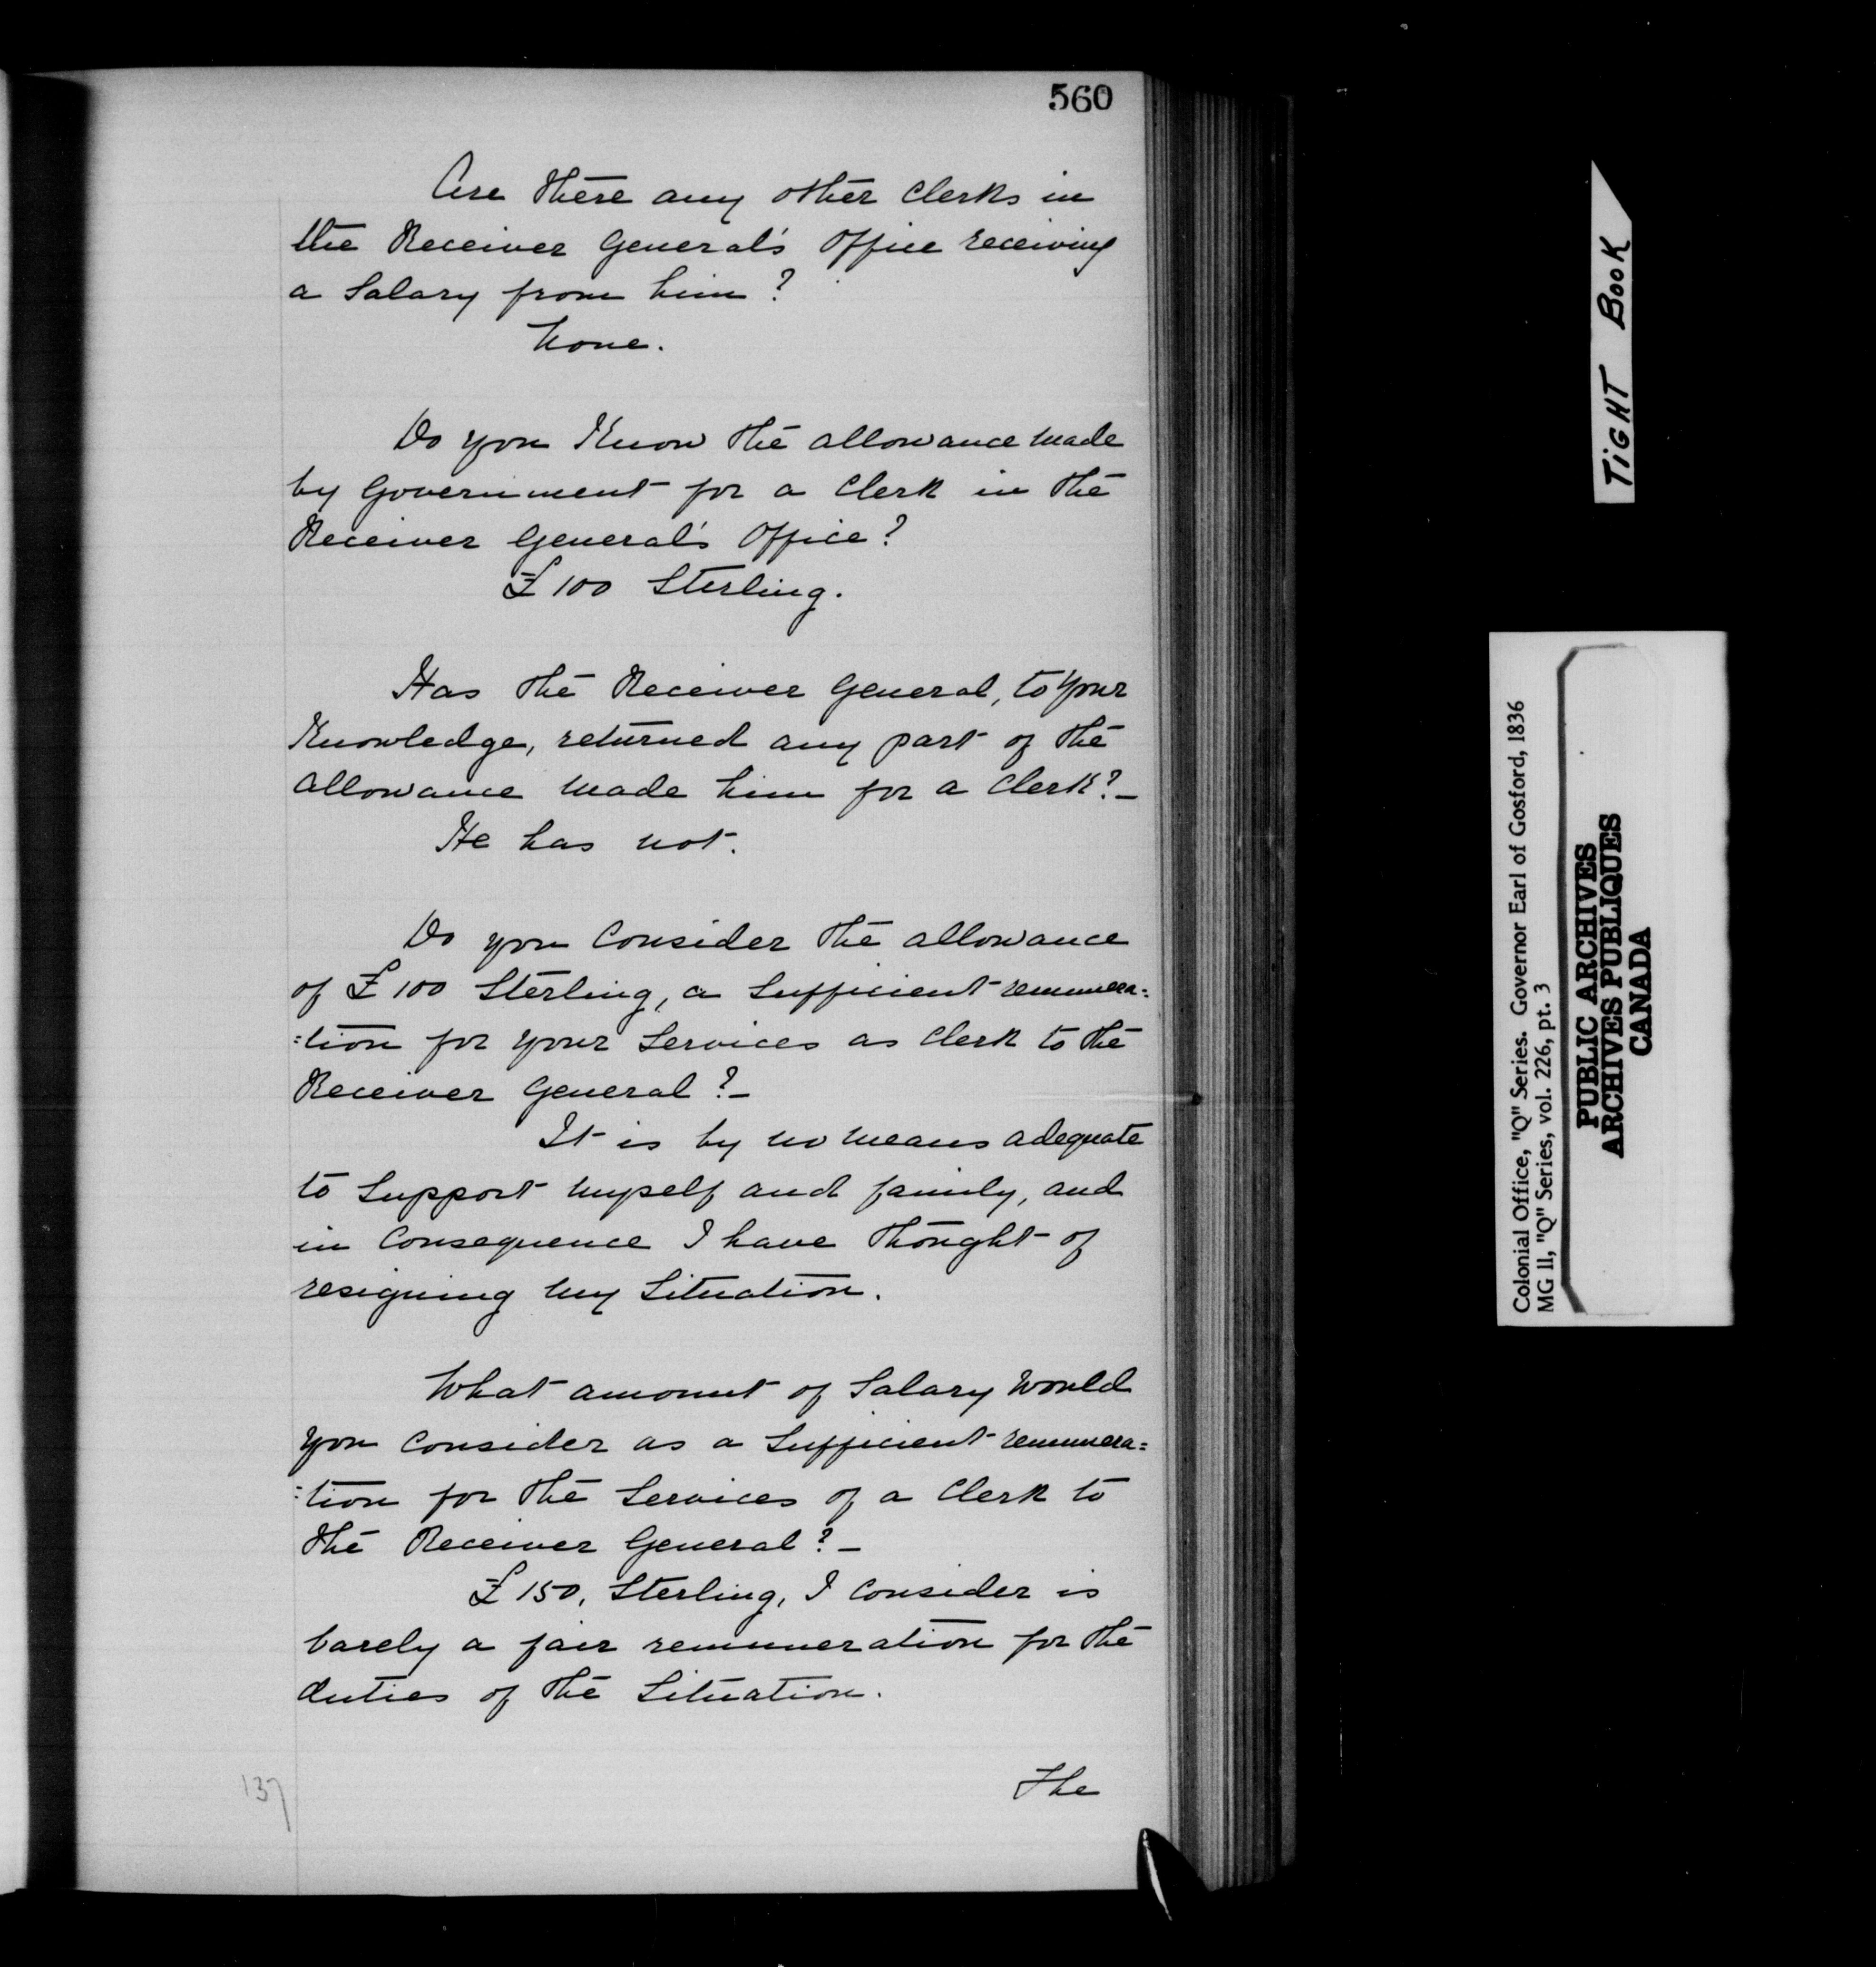 560
Are there any other Clerks in
the Receiver General's Office receiving
a Salary from him?
None.
Do you Know the allowance made
by Government for a Clerk in the
Receiver General's Office?
£100 Sterling.
Has the Receiver General, to Your
Knowledge, returned any part of the
allowance made him for a Clerk?_
He has not.
Do you Consider the allowance
of £100 Sterling, a Sufficient remunera=
=tion for your Services as Clerk to the
Receiver General?_
It is by no means adequate
to Support myself and family, and
in Consequence I have thought of
resigning my Situation.
What amount of Salary would
you Consider as a Sufficient remunera=
=tion for the Services of a Clerk to
the Receiver General?_
£150, Sterling, I Consider is
barely a fair remuneration for the
duties of the Situation.
The
137
TIGHT BOOK
Colonial Office, "Q" Series. Governor Earl of Gosford, 1836
MG 11, "Q" Series, vol. 226, pt. 3
PUBLIC ARCHIVES
ARCHIVES PUBLIQUES
CANADA